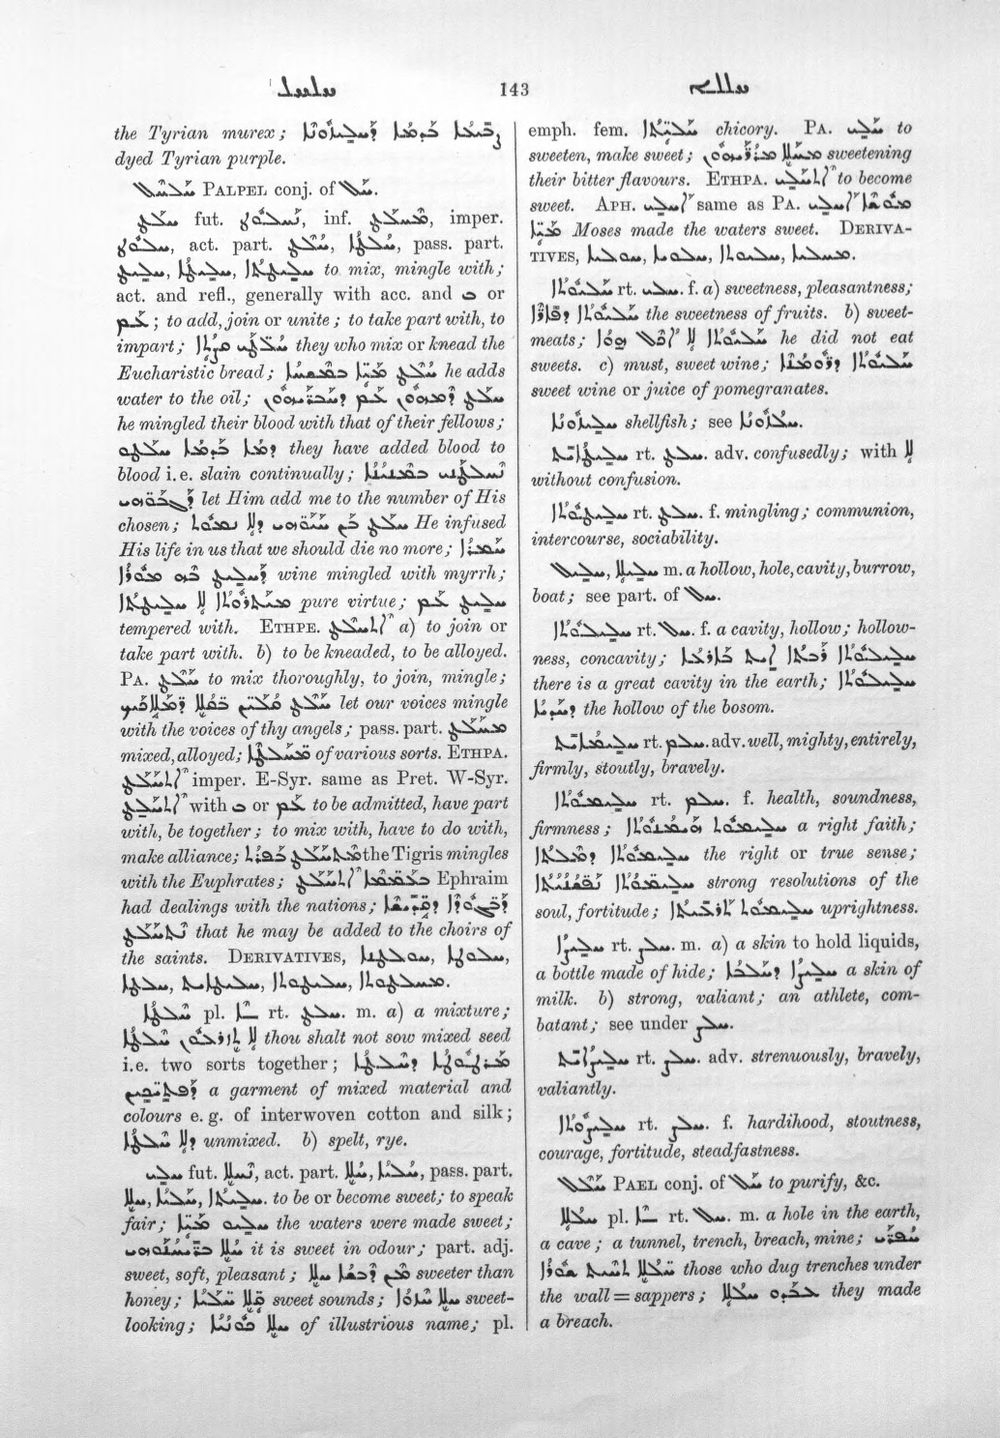 ܚܠܚܠ 143 ܚܠܠܬ
the Tyrian murex; ܕܚܠܙܘܢܐ
dyed Tyrian purple.
ܚܠܚܠ PALPEL conj. of ܚܠ.
ܚܠܛ fut. ܢܚܠܘܛ, inf. ܡܚܠܛ, imper.
ܚܠܘܛ, act. part. ܚܠܛ, ܚܠܛܐ, pass. part.
ܚܠܝܛ, ܚܠܝܛܐ, ܚܠܝܛܬܐ to mix, mingle with;
act. and refl., generally with acc. and ܒ or
ܥܡ; to add, join or unite; to take part with, to
impart; they who mix or knead the
Eucharistic bread; ܚܠܛ ܡܝܐ ܒܡܫܚܐ he adds
water to the oil; ܚܠܛ ܕܡܗܘܢ ܥܡ ܕܚܒܪܝܗܘܢ
he mingled their blood with that of their fellows;
ܕܡܐ ܒܕܡܐ ܚܠܛܘ they have added blood to
blood i.e. slain continually; ܢܚܠܛܢܝ ܒܡܢܝܢܐ
ܕܓܒܘܗܝ let Him add me to the number of His
chosen; ܚܠܛ ܒܢ ܚܝܘܗܝ ܕܠܐ ܢܡܘܬ He infused
His life in us that we should die no more; ܚܡܪܐ
ܕܚܠܝܛ ܒܗ ܡܘܪܐ wine mingled with myrrh;
ܡܝܬܪܘܬܐ ܠܐ ܚܠܝܛܬܐ pure virtue; ܚܠܝܛ ܥܡ
tempered with. ETHPE. ܐܬܚܠܛ a) to join or
take part with. b) to be kneaded, to be alloyed.
PA. ܚܠܛ to mix thoroughly, to join, mingle;
ܚܠܛ ܩܠܝܢ ܒܩܠܐ ܕܡܠܐܟܝܟ let our voices mingle
with the voices of thy angels; pass. part. ܡܚܠܛ
mixed, alloyed; ܡܚܠܛܐ of various sorts. ETHPA.
ܐܬܚܠܛ imper. E-Syr. same as Pret. W-Syr.
ܐܬܚܠܛ with ܒ or ܥܡ to be admitted, have part
with, be together; to mix with, have to do with,
make alliance; the Tigris mingles
with the Euphrates; ܒܥܡܡܐ ܐܬܚܠܛ Ephraim
had dealings with the nations;
ܢܬܚܠܛ that he may be added to the choirs of
the saints. DERIVATIVES, ܚܘܠܛܢܐ,
ܡܚܠܛܘܬܐ.
ܚܠܛܐ pl. rt. ܚܠܛ. m. a) a mixture;
ܠܐ ܬܙܪܘܥ ܚܠܛܐ thou shalt not sow mixed seed
i.e. two sorts together; ܡܪܛܘܛܐ ܕܚܠܛܐ
a garment of mixed material and
colours e. g. of interwoven cotton and silk;
ܕܠܐ ܚܠܛܐ unmixed. b) spelt, rye.
ܚܠܝ fut. ܢܚܠܐ, act. part. ܚܠܐ, ܚܠܝܐ, pass. part.
ܚܠܐ, ܚܠܝܐ, ܚܠܝܬܐ. to be or become sweet; to speak
fair; ܚܠܝܘ ܡܝܐ the waters were made sweet;
ܚܠܐ ܒܪܝܚܢܘܗܝ it is sweet in odour; part. adj.
sweet, soft, pleasant; ܚܠܐ ܡܢ ܕܒܫܐ sweeter than
honey; ܩܠܐ ܚܠܝܐ sweet sounds; ܚܠܐ ܚܙܘܐ sweet-
looking; ܚܠܐ ܟܘܢܝܐ of illustrious name; pl.
emph. fem. ܚܠܝܬܐ chicory. PA. ܚܠܝ to
sweeten, make sweet; ܡܚܠܐ ܡܪܝܪܘܬܗܘܢ sweetening
their bitter flavours. ETHPA. ܐܬܚܠܝ to become
sweet. APH. ܐܚܠܝ same as PA. ܐܚܠܝ ܡܘܫܐ
ܡܝܐ Moses made the waters sweet. DERIVA-
TIVES, ܚܘܠܝܐ, ܡܚܠܝܐ.
ܚܠܝܘܬܐ rt. ܚܠܝ. f. a) sweetness, pleasantness;
ܚܠܝܘܬܐ ܕܦܐܪܐ the sweetness of fruits. b) sweet-
meats; ܚܠܝܘܬܐ ܠܐ ܐܟܠ ܗܘܐ he did not eat
sweets. c) must, sweet wine; ܚܠܝܘܬܐ ܕܪܘܡܢܐ
sweet wine or juice of pomegranates.
ܚܠܝܙܘܢܐ shellfish; see ܚܠܙܘܢܐ.
ܚܠܝܛܐܝܬ rt. ܚܠܛ. adv. confusedly; with ܠܐ
without confusion.
ܚܠܝܛܘܬܐ rt. ܚܠܛ. f. mingling; communion,
intercourse, sociability.
ܚܠܝܠ, ܚܠܝܠܐ m. a hollow, hole, cavity, burrow,
boat; see part. of ܚܠ.
ܚܠܝܠܘܬܐ rt. ܚܠ. f. a cavity, hollow; hollow-
ness, concavity; ܚܠܝܠܘܬܐ ܪܒܬܐ ܐܝܬ ܒܐܪܥܐ
there is a great cavity in the earth; ܚܠܝܠܘܬܐ
ܕܚܕܝܐ the hollow of the bosom.
ܚܠܝܡܐܝܬ rt. ܚܠܡ. adv. well, mighty, entirely,
firmly, stoutly, bravely.
ܚܠܝܡܘܬܐ rt. ܚܠܡ. f. health, soundness,
firmness; ܚܠܝܡܘܬ ܗܝܡܢܘܬܐ a right faith;
ܚܠܝܡܘܬܐ ܕܡܠܬܐ the right or true sense;
ܚܠܝܡܘܬܐ ܢܦܫܢܝܬܐ strong resolutions of the
soul, fortitude; ܚܠܝܡܘܬ ܬܪܥܝܬܐ uprightness.
ܚܠܝܨܐ rt. ܚܠܨ. m. a) a skin to hold liquids,
a bottle made of hide; ܚܠܝܨܐ ܕܚܠܒܐ a skin of
milk. b) strong, valiant; an athlete, com-
batant; see under ܚܠܨ.
ܚܠܝܨܐܝܬ rt. ܚܠܨ. adv. strenuously, bravely,
valiantly.
ܚܠܝܨܘܬܐ rt. ܚܠܨ. f. hardihood, stoutness,
courage, fortitude, steadfastness.
ܚܠܠ PAEL conj. of ܚܠ to purify, &c.
ܚܠܠܐ pl. rt. ܚܠ. m. a hole in the earth,
a cave; a tunnel, trench, breach, mine;
ܚܠܠܐ ܬܚܝܬ ܫܘܪܐ those who dug trenches under
the wall = sappers; ܥܒܕܘ ܚܠܠܐ they made
a breach.